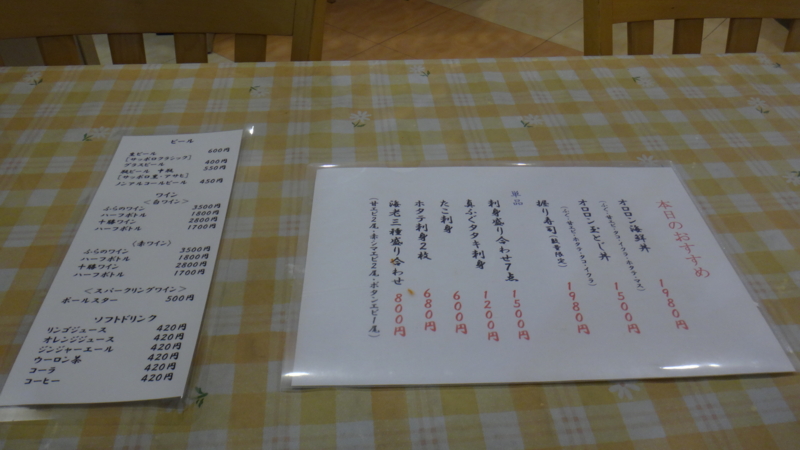 ビール
生ビール 600円
[サッポロクラシック]
グラスビール 400円
瓶ビール 中瓶 550円
[サッポロ黒・アサヒ]
ノンアルコールビール 450円
ワイン
<白ワイン>
ふらのワイン 3500円
ハーフボトル 1800円
十勝ワイン 2800円
ハーフボトル 1700円
<赤ワイン>
ふらのワイン 3500円
ハーフボトル 1800円
十勝ワイン 2800円
ハーフボトル 1700円
<スパークリングワイン>
ポールスター 500円
ソフトドリンク
リンゴジュース 420円
オレンジジュース 420円
ジンジャーエール 420円
ウーロン茶 420円
コーラ 420円
コーヒー 420円
本日のおすすめ
オロロン海鮮丼 1980円
オロロン玉とじ丼 1500円
握り寿司(数量限定) 1980円
単品
刺身盛り合わせ7点 1500円
真ふぐタタキ刺身 1200円
たこ刺身 600円
ホタテ刺身2枚 680円
海老三種盛り合わせ 800円
(甘エビ2尾・キシマエビ2尾・ボタンエビ1尾)